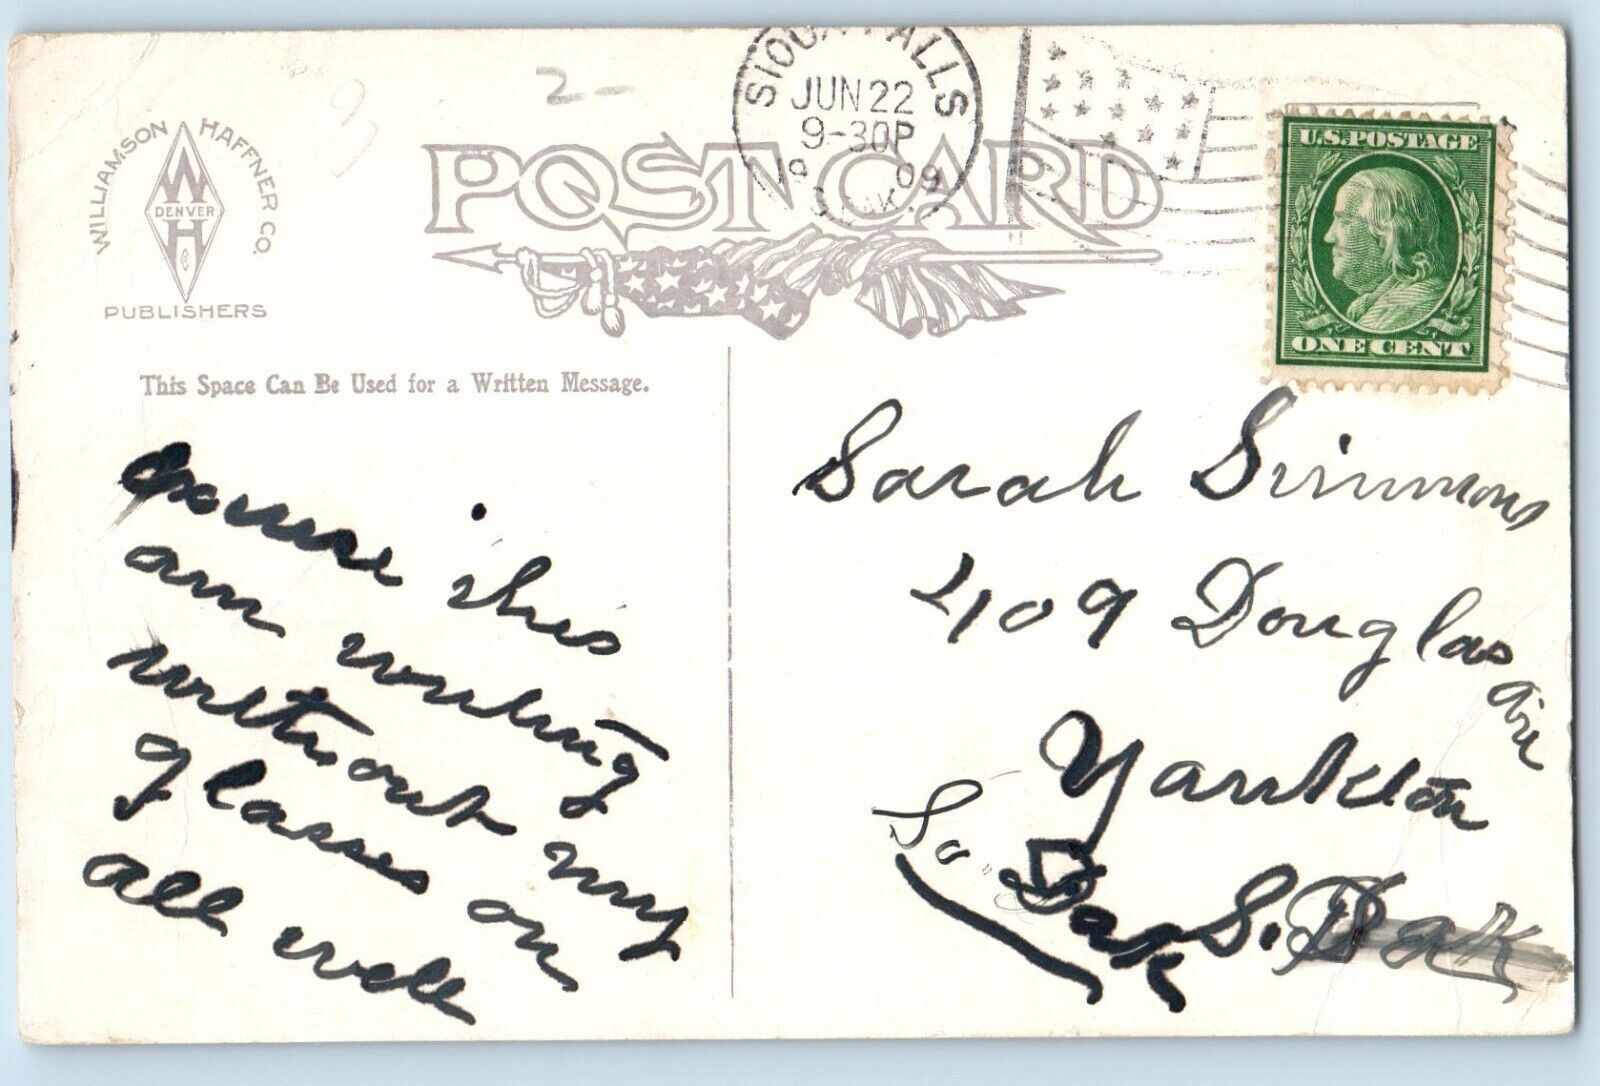 2-
WILLIAMSON HAFFNER CO.
W
DENVER
H
Co
PUBLISHERS
POST CARD
SIOUX FALLS
JUN 22
9-30P
19 09
S. DAK.
U.S. POSTAGE
ONE CENT
This Space Can Be Used for a Written Message.
excuse this
am working
without my
glasses on
all well
Sarah Simmons
409 Douglas
Ave
Yankton
So. Dak S. Dak